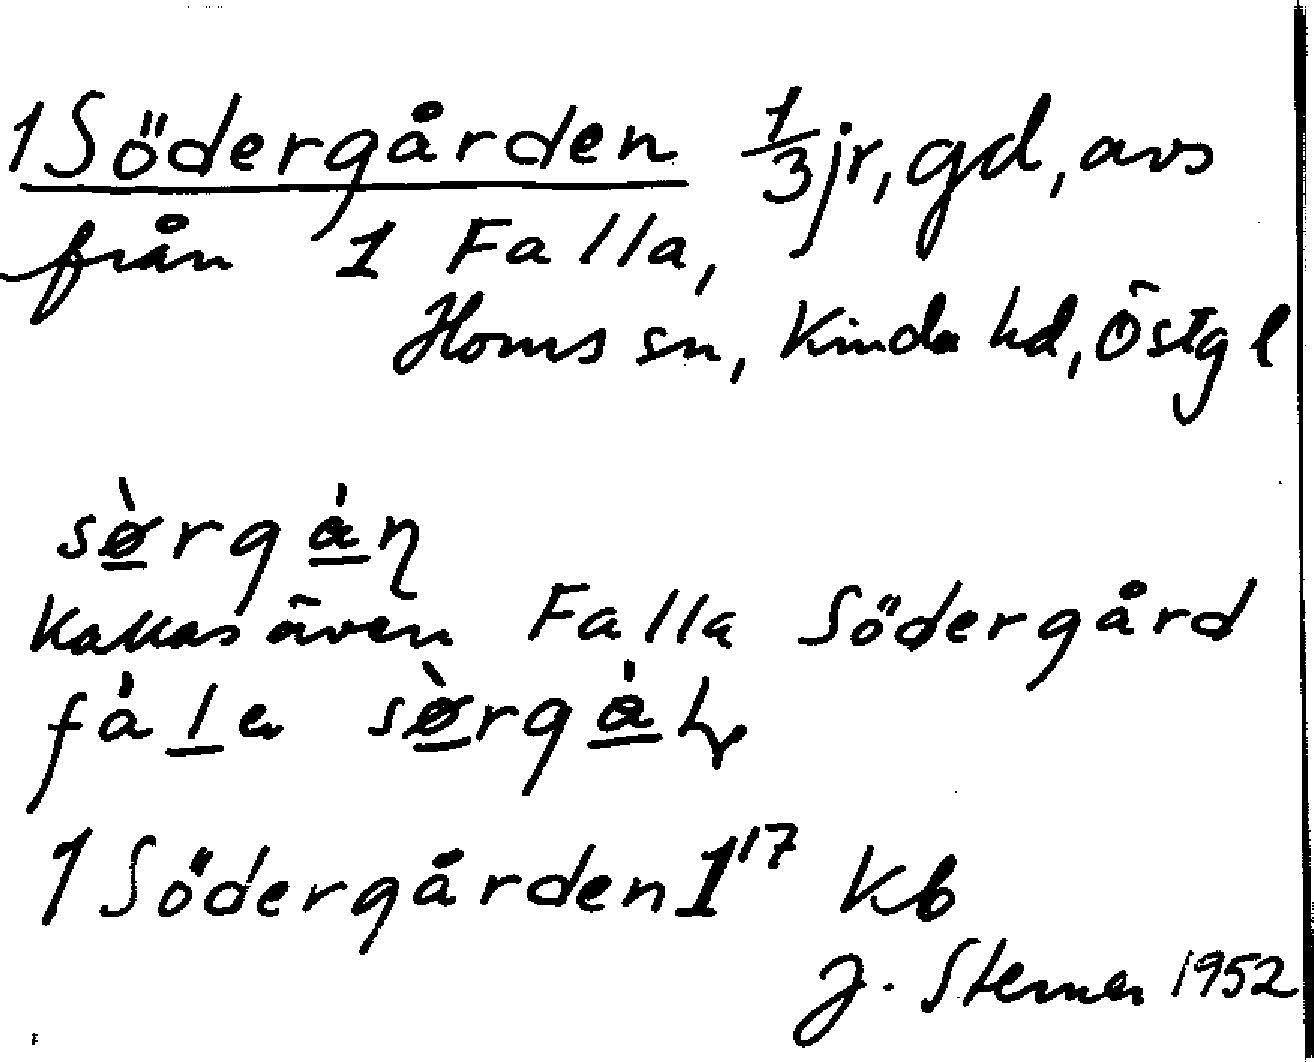 1 Södergården 1/3 jr, gd, avs
från 1 Falla,
Homs sn, Kinda hd, Östg l
sø̀rgȧ̀ɳ
Kallas även Falla Södergård
fàla sø̀rgàɖ
1 Södergården 1¹⁷ Kb
J. Sterner 1952